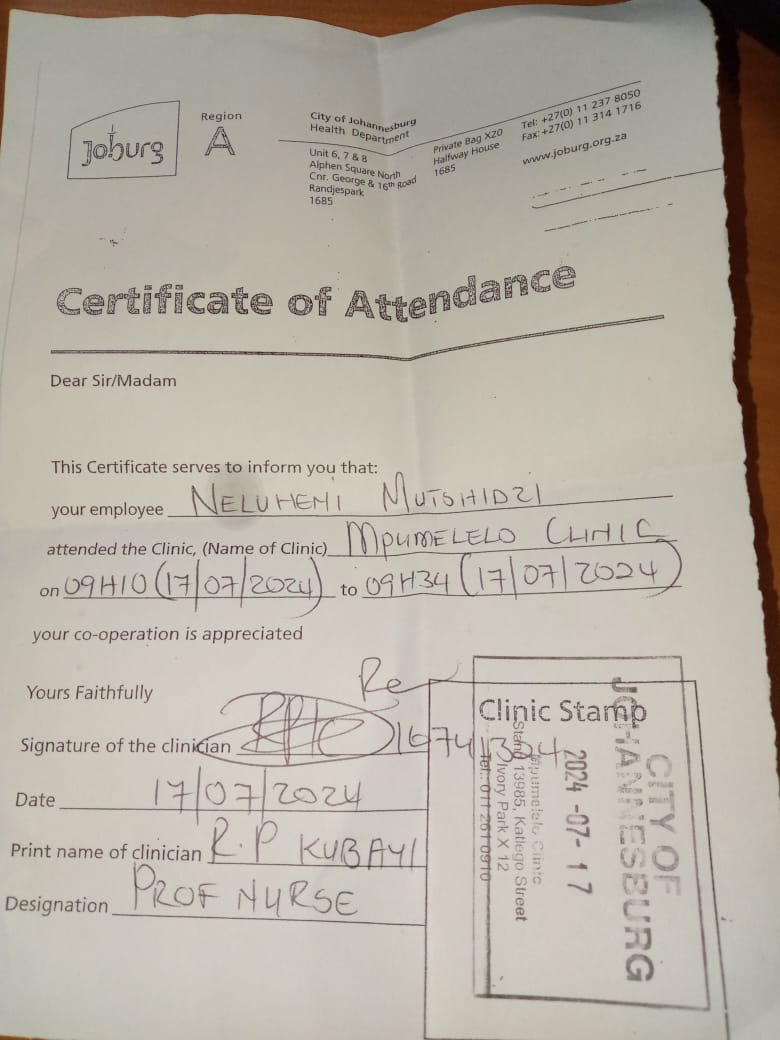 Joburg
Region
A
City of Johannesburg
Health Department
Unit 6, 7 & 8
Alphen Square North
Cnr. George & 16th Road
Randjespark
1685
Private Bag X20
Halfway House
1685
Tel: +27(0) 11 237 8050
Fax: +27(0) 11 314 1716
www.joburg.org.za
Certificate of Attendance
Dear Sir/Madam
This Certificate serves to inform you that:
your employee NELUHENI MUTSHIDZI
attended the Clinic, (Name of Clinic) MPUMELELO CLINIC
on 09H10 (17/07/2024) to 09H34 (17/07/2024)
your co-operation is appreciated
Yours Faithfully
Signature of the clinician
Date 17/07/2024
Print name of clinician R.P KUBAYI
Designation PROF NURSE
Clinic Stamp
CITY OF
JOHANNESBURG
2024-07-17
Mpumelelo Clinic
Stand 13985, Katlego Street
Ivory Park X 12
Tel.: 011 261 0910